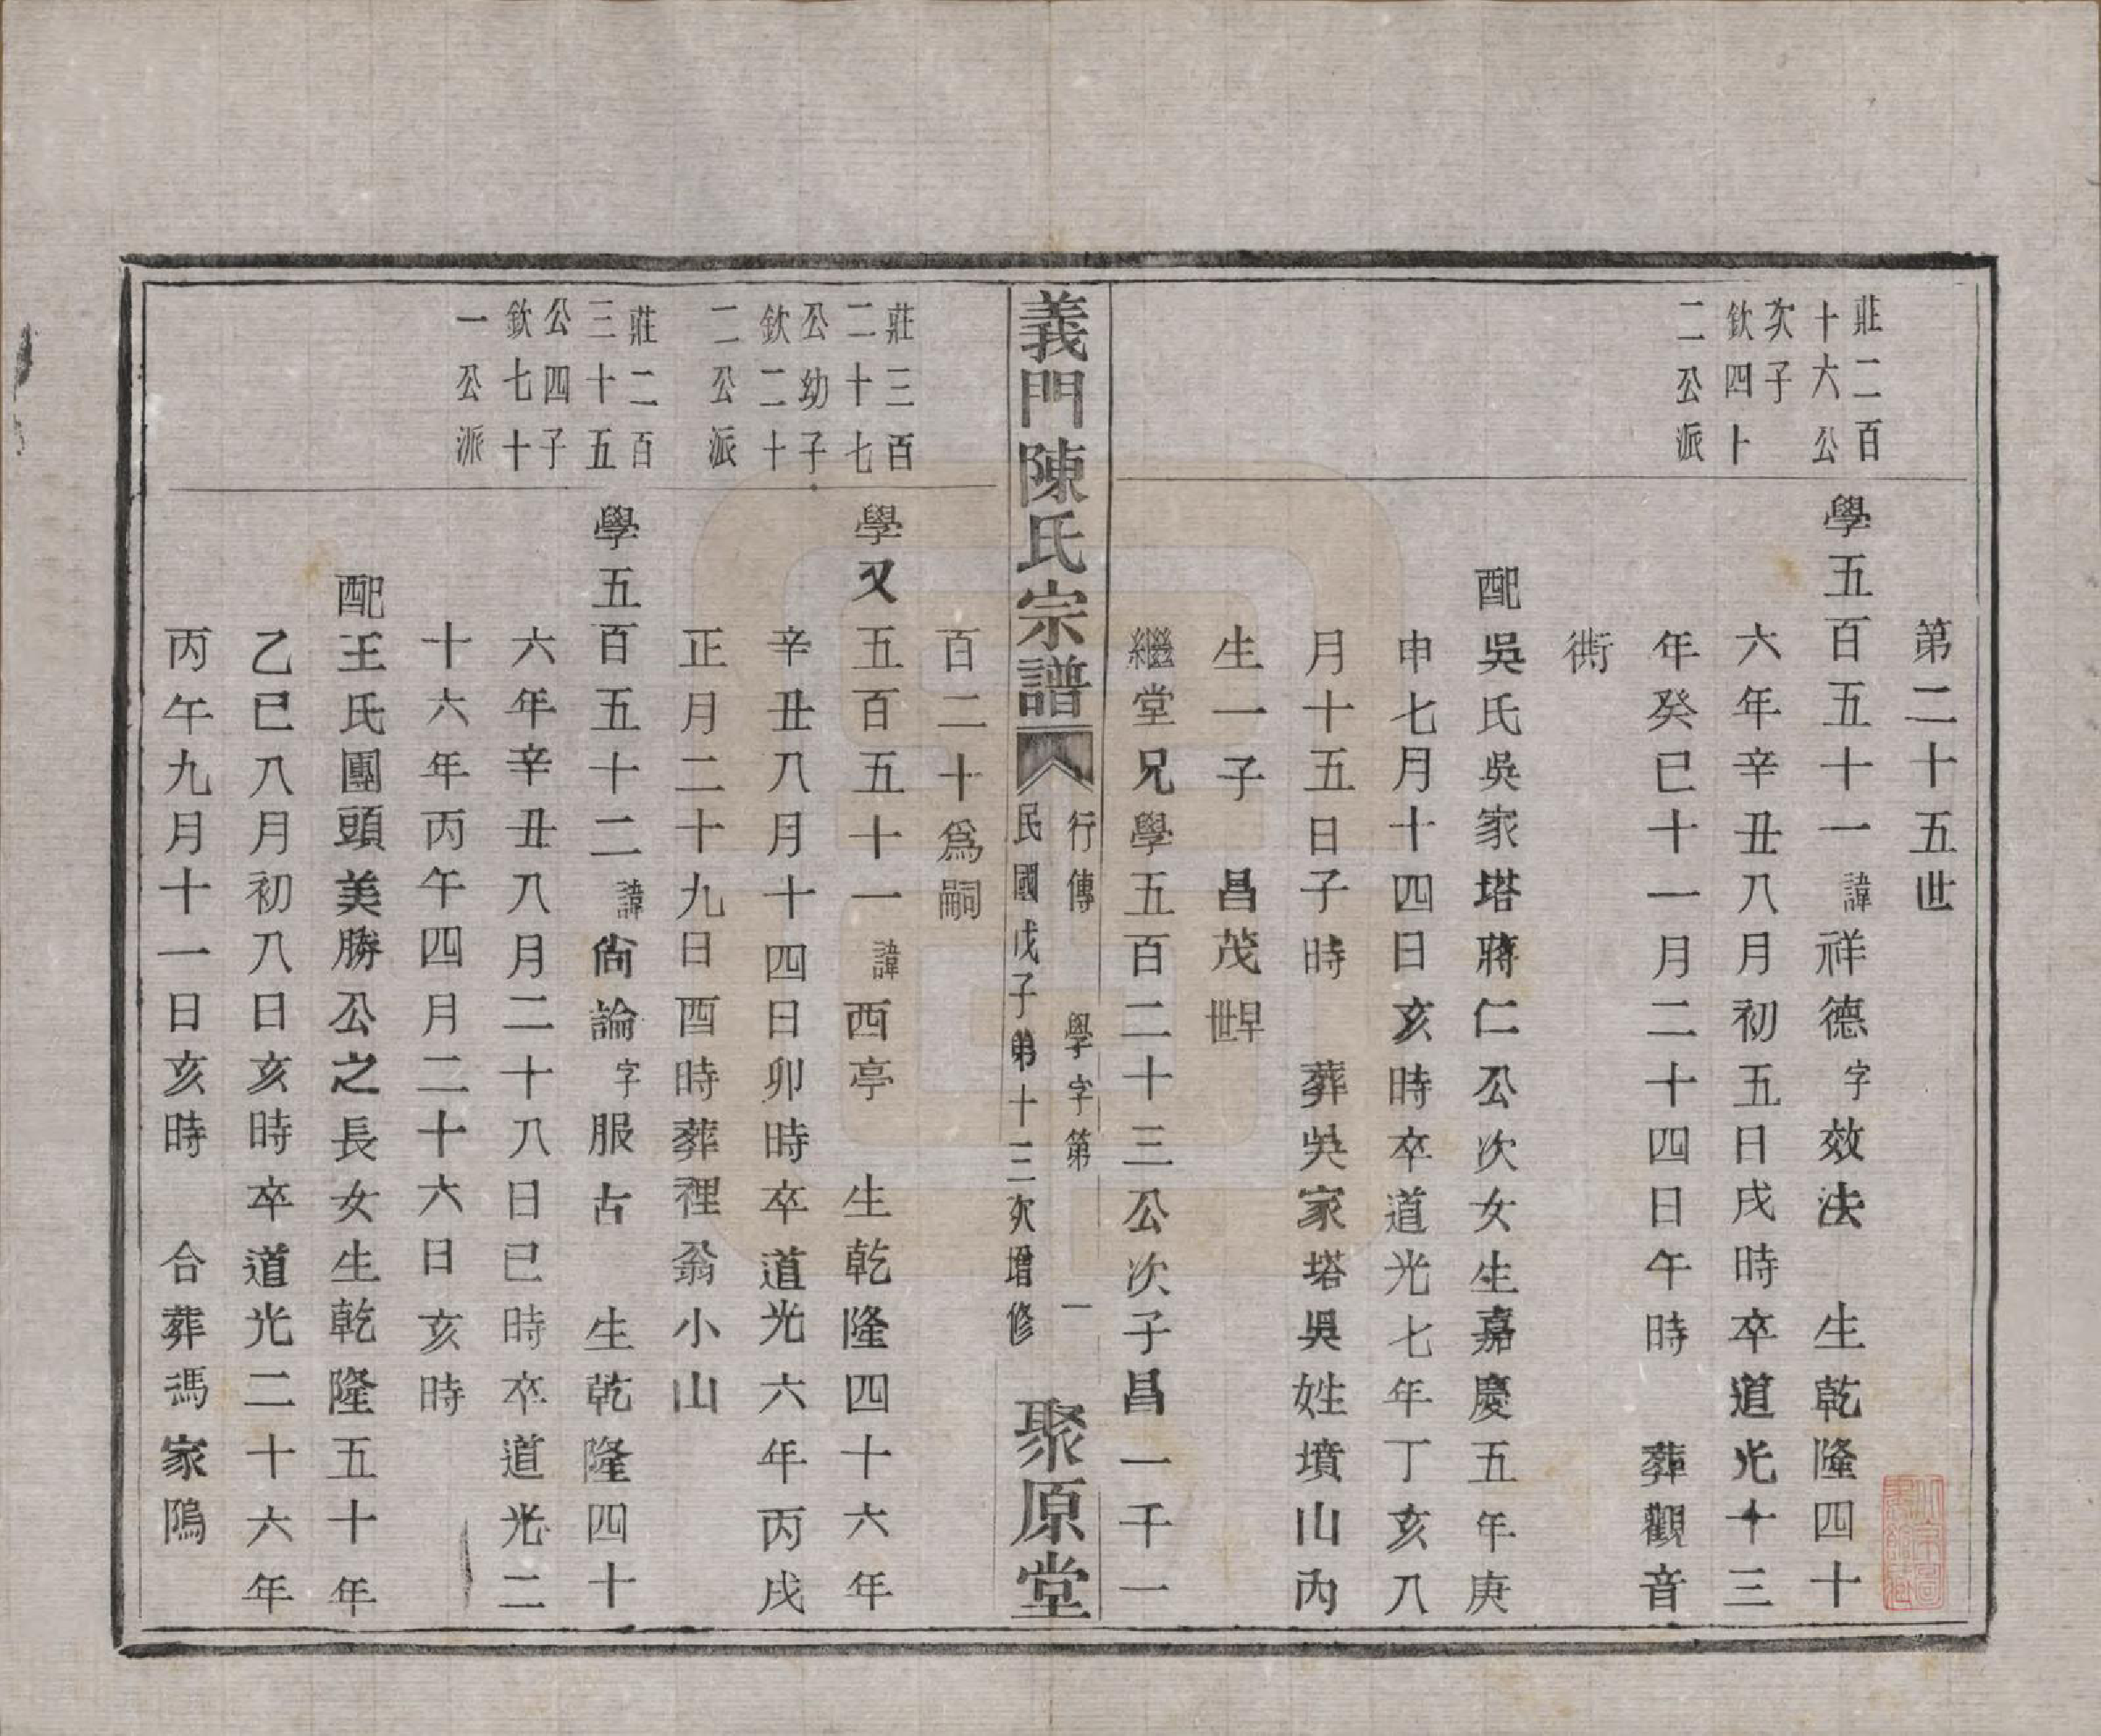 第二十五世
莊二百
十六公
次子
欽四十
二公派
學五百五十一諱祥德字效法　生乾隆四十
六年辛丑八月初五日戌時卒道光十三
年癸巳十一月二十四日午時　葬觀音
衖
配吳氏吳家塔蔣仁公次女生嘉慶五年庚
申七月十四日亥時卒道光七年丁亥八
月十五日子時　葬吳家塔吳姓墳山內
生一子　昌茂早世
繼堂兄學五百二十三公次子昌一千一
義門陳氏宗譜
行傳　學字第　一
民國戊子第十三次增修
聚原堂
百二十爲嗣
莊三百
二十七
公幼子
欽二十
二公派
學又五百五十一諱西亭　生乾隆四十六年
辛丑八月十四日卯時卒道光六年丙戌
正月二十九日酉時葬裡翁小山
莊二百
三十五
公四子
欽七十
一公派
學五百五十二諱尙論字服古　生乾隆四十
六年辛丑八月二十八日巳時卒道光二
十六年丙午四月二十六日亥時
配王氏團頭美勝公之長女生乾隆五十年
乙巳八月初八日亥時卒道光二十六年
丙午九月十一日亥時　合葬馮家隖